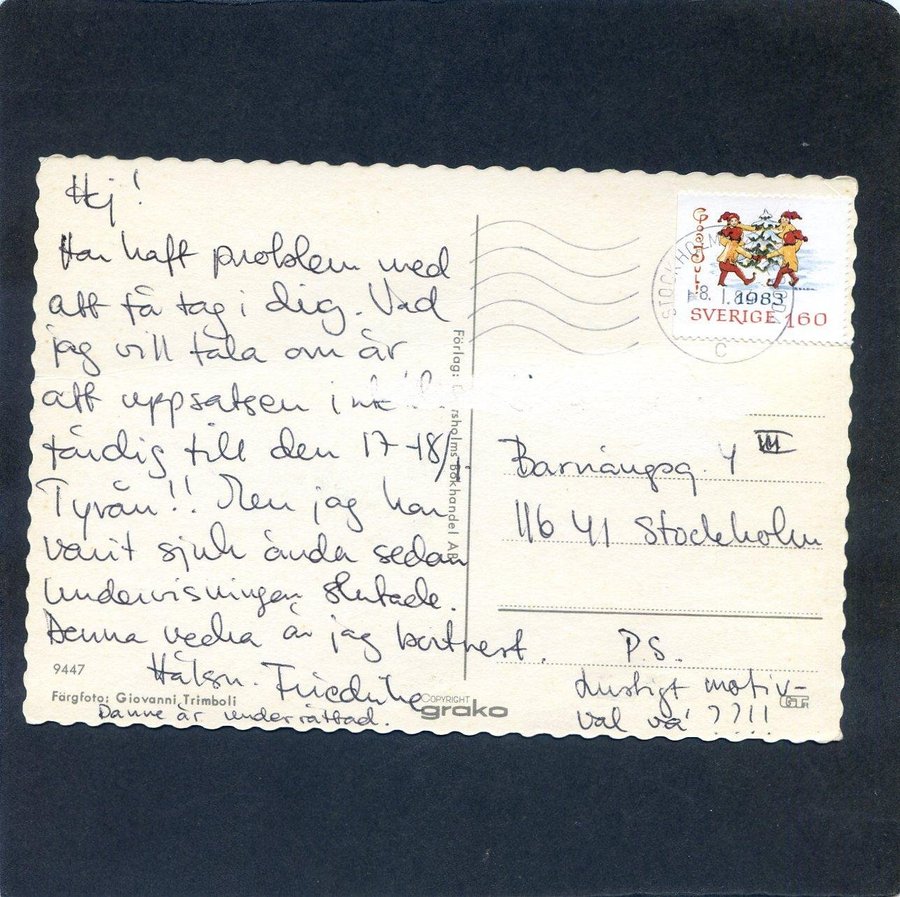 Hej!
Har haft problem med
att få tag i dig. Vad
jag vill tala om är
att uppsatsen inte
färdig till den 17-18/1.
Tyvärr!! Men jag har
varit sjuk ända sedan
undervisningen slutade.
Denna vecka är jag bortrest.
Hälsn. Friederike
Danne är underrättad.
9447
Färgfoto: Giovanni Trimboli
Förlag:
rsholms Bokhandel AB
COPYRIGHT
grako
God Jul!
STOCKHOLM
8. 1. 1983
C
SVERIGE 160
Barnängsg. 4 III
116 41 Stockholm
P.S.
Lustigt motiv-
val va' ??!!